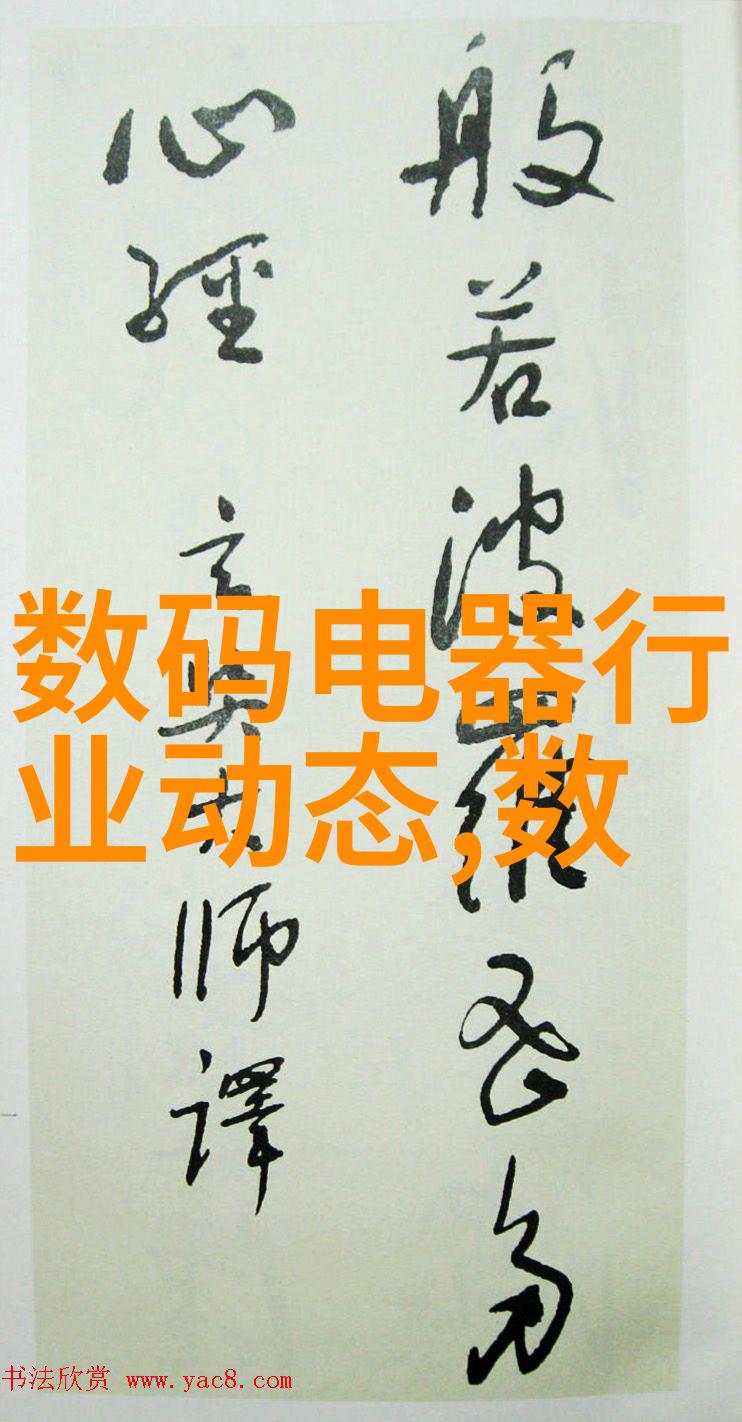 般若波羅蜜多
心經 玄奘大師譯
数码电器行
业动态,数
书法欣赏 www.yac8.com